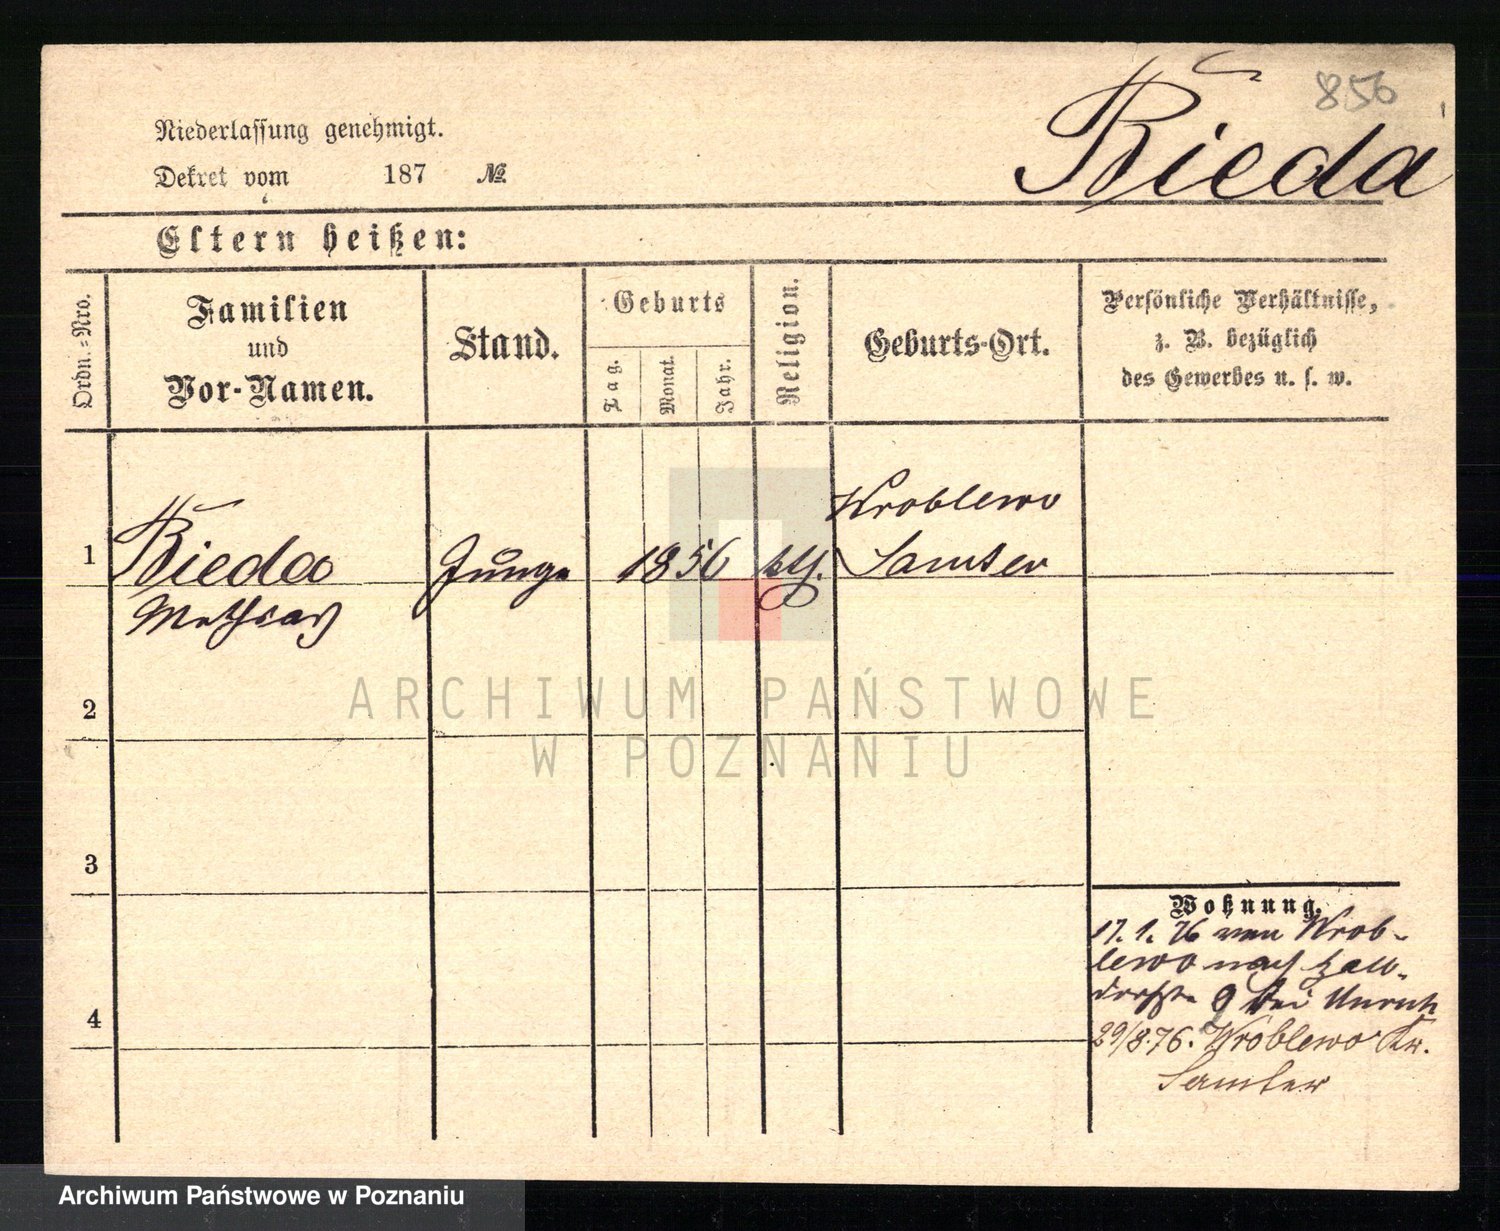 856
Bieda
Niederlassung genehmigt.
Dekret vom 187 №
Eltern heißen:
Ordn.-Nro.
Familien
und
Vor-Namen.
Stand.
Geburts
Tag.
Monat.
Jahr.
Religion.
Geburts-Ort.
Persönliche Verhältnisse,
z. B. bezüglich
des Gewerbes u. s. w.
1
Bieda
Mathias
Junge
1856
kth.
Wroblewo
Samter
2
ARCHIWUM PAŃSTWOWE
W POZNANIU
3
4
Wohnung.
17. 1. 76 von Wrob-
lewo nach
9 bei Unruh
29/8.76. Wroblewo Kr.
Samter
Archiwum Państwowe w Poznaniu